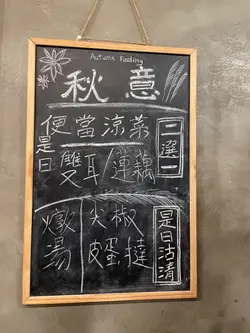 Autumn Feeling
秋意
便當涼菜
二選一
是日
雙耳/蓮藕
燉湯
尖椒
皮蛋撻
是日沽清